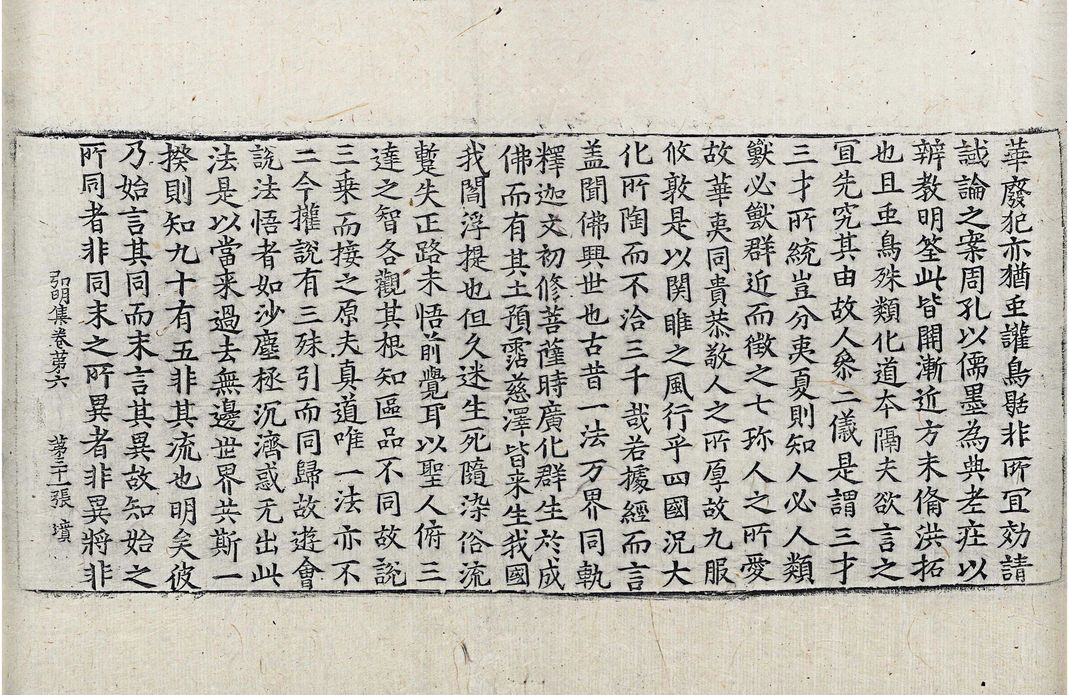 華廢犯亦猶虫讙鳥聒非所冝効請
試論之案周孔以儒墨為典老莊以
辨教明筌此皆開漸近方未俻洪拓
也且虫鳥殊類化道本隔夫欲言之
冝先究其由故人叅二儀是謂三才
三才所統豈分夷夏則知人必人類
獸必獸群近而徵之七珎人之所愛
故華夷同貴恭敬人之所厚故九服
攸敦是以関睢之風行乎四國況大
化所陶而不洽三千哉若據經而言
盖聞佛興世也古昔一法万界同軌
釋迦文初修菩薩時廣化群生於成
佛而有其土預霑慈澤皆来生我國
我閻浮提也但久迷生死隨染俗流
蹔失正路未悟前覺耳以聖人俯三
達之智各觀其根知區品不同故說
三乘而接之原夫真道唯一法亦不
二今攉說有三殊引而同歸故遊會
說法悟者如沙塵拯沉濟惑无出此
法是以當来過去無邊世界共斯一
揆則知九十有五非其流也明矣彼
乃始言其同而末言其異故知始之
所同者非同末之所異者非異將非
弘明集卷第六 第三十一張 墳